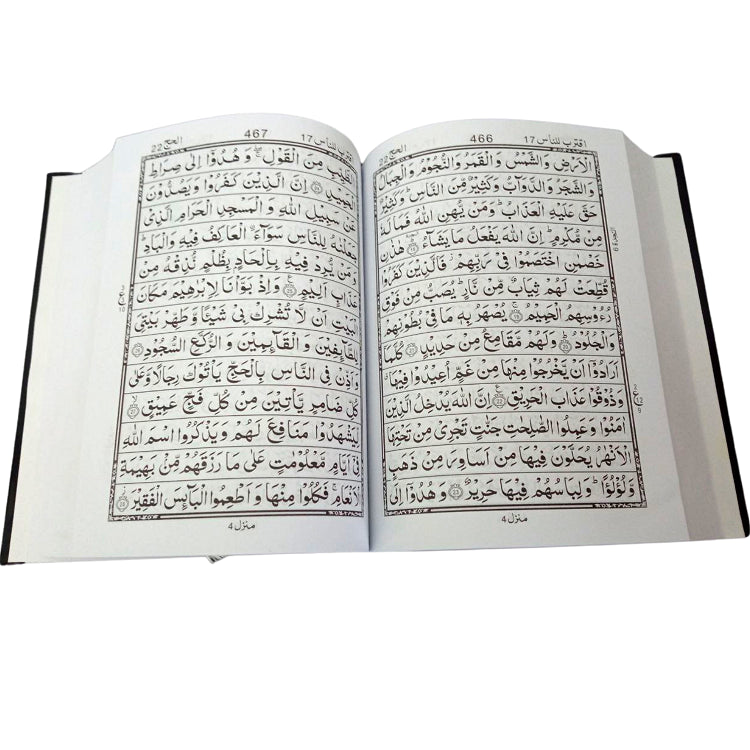 اقترب للناس 17 466 الحج 22
الْاَرْضِ وَالشَّمْسُ وَالْقَمَرُ وَالنُّجُوْمُ وَالْجِبَالُ
وَالشَّجَرُ وَالدَّوَآبُّ وَكَثِيْرٌ مِّنَ النَّاسِ ؕ وَكَثِيْرٌ
حَقَّ عَلَيْهِ الْعَذَابُ ؕ وَمَنْ يُّهِنِ اللّٰهُ فَمَا لَهٗ
مِنْ مُّكْرِمٍ ؕ اِنَّ اللّٰهَ يَفْعَلُ مَا يَشَآءُ ۩ هٰذٰنِ
خَصْمٰنِ اخْتَصَمُوْا فِيْ رَبِّهِمْ ؗ فَالَّذِيْنَ كَفَرُوْا
قُطِّعَتْ لَهُمْ ثِيَابٌ مِّنْ نَّارٍ ؕ يُصَبُّ مِنْ فَوْقِ
رُءُوْسِهِمُ الْحَمِيْمُ ۚ يُصْهَرُ بِهٖ مَا فِيْ بُطُوْنِهِمْ
وَالْجُلُوْدُ ؕ وَلَهُمْ مَّقَامِعُ مِنْ حَدِيْدٍ كُلَّمَاۤ
اَرَادُوْۤا اَنْ يَّخْرُجُوْا مِنْهَا مِنْ غَمٍّ اُعِيْدُوْا فِيْهَا ۗ
وَذُوْقُوْا عَذَابَ الْحَرِيْقِ اِنَّ اللّٰهَ يُدْخِلُ الَّذِيْنَ
اٰمَنُوْا وَعَمِلُوا الصّٰلِحٰتِ جَنّٰتٍ تَجْرِيْ مِنْ تَحْتِهَا
الْاَنْهٰرُ يُحَلَّوْنَ فِيْهَا مِنْ اَسَاوِرَ مِنْ ذَهَبٍ
وَّلُؤْلُؤًا ؕ وَلِبَاسُهُمْ فِيْهَا حَرِيْرٌ وَهُدُوْۤا اِلَى
منزل 4
اقترب للناس 17 467 الحج 22
الطَّيِّبِ مِنَ الْقَوْلِ ۚ وَهُدُوْۤا اِلٰى صِرَاطِ
الْحَمِيْدِ اِنَّ الَّذِيْنَ كَفَرُوْا وَيَصُدُّوْنَ
عَنْ سَبِيْلِ اللّٰهِ وَالْمَسْجِدِ الْحَرَامِ الَّذِيْ
جَعَلْنٰهُ لِلنَّاسِ سَوَآءَ ۨالْعَاكِفُ فِيْهِ وَالْبَادِ ؕ
وَمَنْ يُّرِدْ فِيْهِ بِاِلْحَادٍۭ بِظُلْمٍ نُّذِقْهُ مِنْ
عَذَابٍ اَلِيْمٍ وَاِذْ بَوَّاْنَا لِاِبْرٰهِيْمَ مَكَانَ
الْبَيْتِ اَنْ لَّا تُشْرِكْ بِيْ شَيْئًا وَّطَهِّرْ بَيْتِيَ
لِلطَّآئِفِيْنَ وَالْقَآئِمِيْنَ وَالرُّكَّعِ السُّجُوْدِ
وَاَذِّنْ فِي النَّاسِ بِالْحَجِّ يَاْتُوْكَ رِجَالًا وَّعَلٰى
كُلِّ ضَامِرٍ يَّاْتِيْنَ مِنْ كُلِّ فَجٍّ عَمِيْقٍ
لِّيَشْهَدُوْا مَنَافِعَ لَهُمْ وَيَذْكُرُوا اسْمَ اللّٰهِ
فِيْۤ اَيَّامٍ مَّعْلُوْمٰتٍ عَلٰى مَا رَزَقَهُمْ مِّنْۢ بَهِيْمَةِ
الْاَنْعَامِ ۚ فَكُلُوْا مِنْهَا وَاَطْعِمُوا الْبَآئِسَ الْفَقِيْرَ
منزل 4